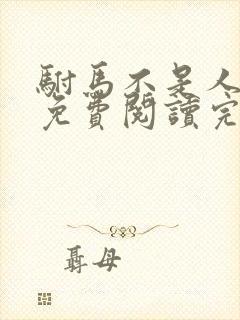 駙馬不是人
免費閱讀完
聶母